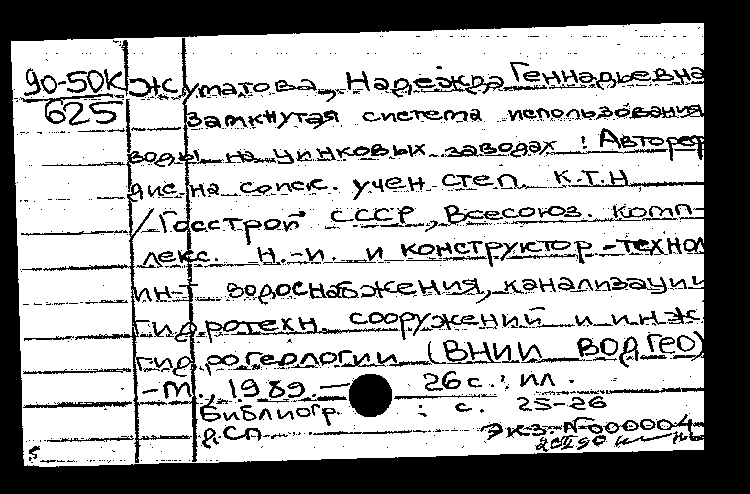 90-50К Жуматова, Надежда Геннадьевна
625 Замкнутая система использования
воды на цинковых заводах : Автореф
дис. на соиск. учен степ. К.Т.Н
/Госстрой СССР, Всесоюз. комп-
лекс. Н.-и. и конструктор-технол
ин-т водоснабжения, канализации
гидротехн. сооружений и инж.
гидрогеологии (ВНИИ ВОДГЕО)
-М., 1989.— 26 с.: ил.
Библиогр. : с. 25-26
ДСП Экз. №000004